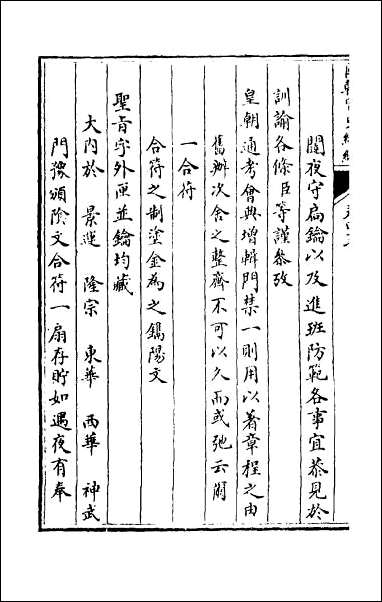 國朝宮史續編
關夜守扃鑰以及進班防範各事宜恭見於
訓諭各條臣等謹叅攷
皇朝通考會典增輯門禁一則用以著章程之由
舊辦次舍之整齊不可以久而或弛云爾
一合符
合符之制塗金為之鐫陽文
聖旨字外匣並鑰均藏
大內於 景運 隆宗 東華 西華 神武
門豫頒陰文合符一扇存貯如遇夜有奉